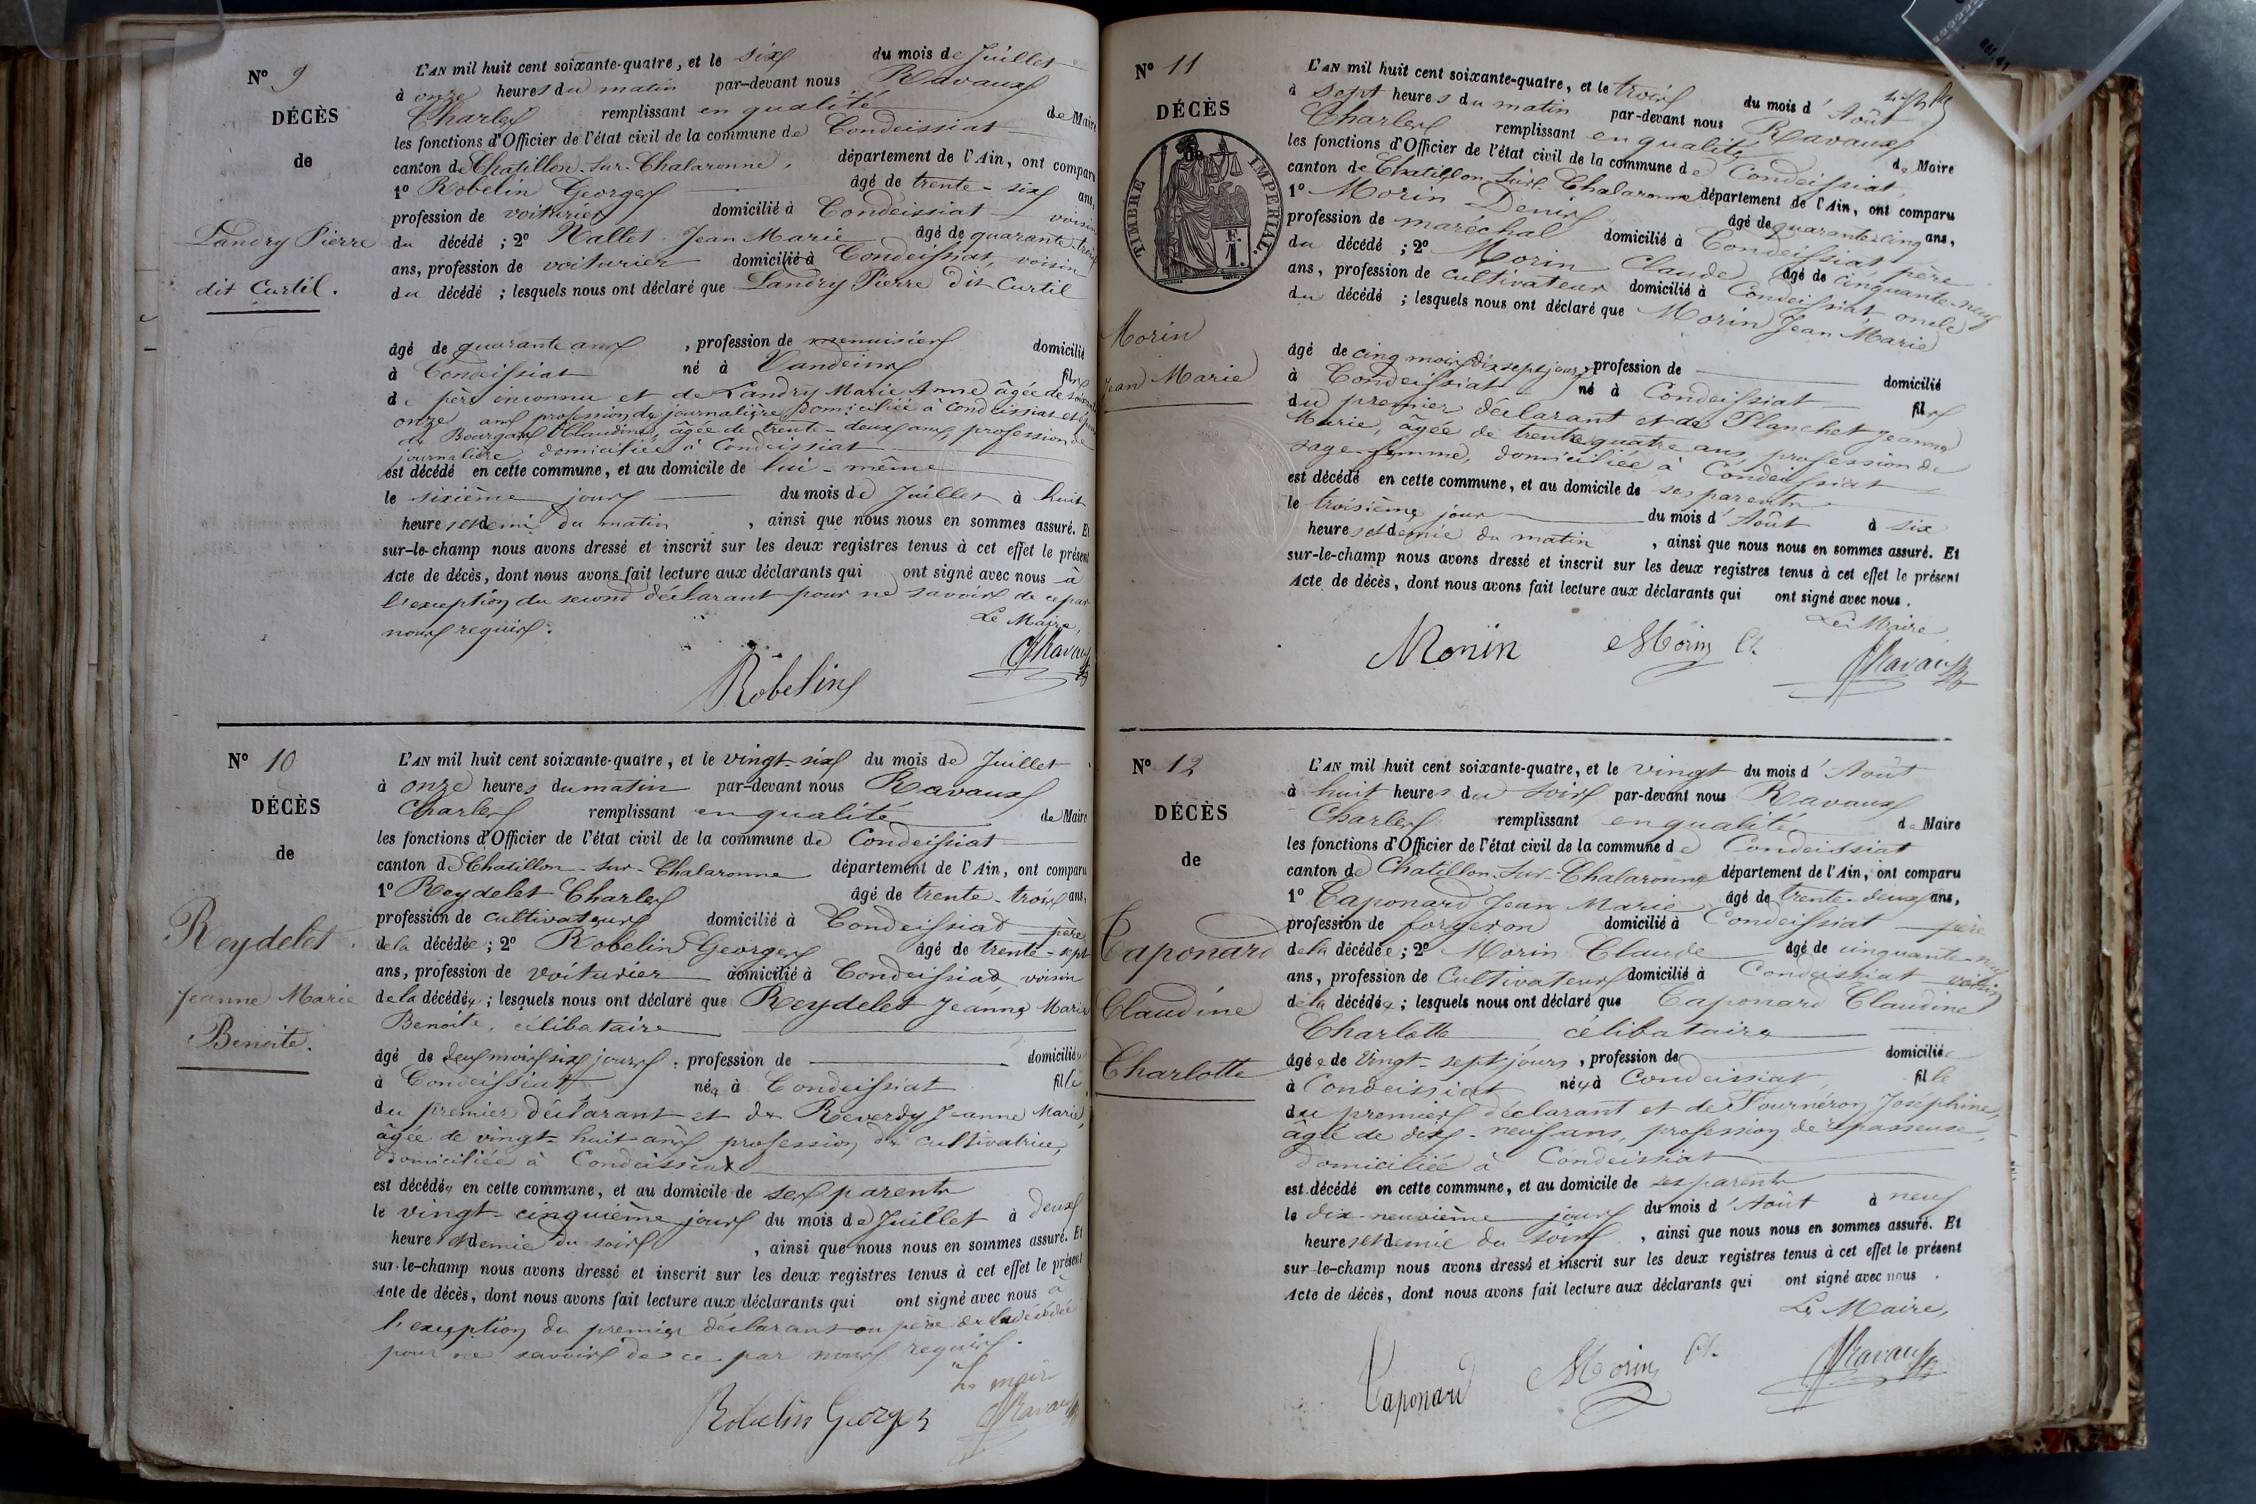 N° 9
DÉCÈS
de
Landry Pierre
dit Curtil.
L'AN mil huit cent soixante-quatre, et le six du mois de Juillet
à onze heures du matin par-devant nous Ravaux
Charles remplissant en qualité de Maire
les fonctions d'Officier de l'état civil de la commune de Condeissiat
canton de Chatillon-sur-Chalaronne, département de l'Ain, ont comparu
1° Robelin Georges âgé de trente-six ans,
profession de voiturier domicilié à Condeissiat voisin
du décédé ; 2° Jean Marie âgé de quarante-trois
ans, profession de voiturier domicilié à Condeissiat, voisin
du décédé ; lesquels nous ont déclaré que Landry Pierre dit Curtil
âgé de quarante ans , profession de menuisier domicilié
à Condeissiat né à Vandeins fils
de père inconnu et de Landry Marie Anne âgée de
onze ans profession de journalière domiciliée à Condeissiat et époux
de Claudine, âgée de trente-deux ans, profession de
journalière domiciliée à Condeissiat
est décédé en cette commune, et au domicile de lui-même
le sixième jour du mois de Juillet à huit
heures et demi du matin , ainsi que nous nous en sommes assuré. Et
sur-le-champ nous avons dressé et inscrit sur les deux registres tenus à cet effet le présent
Acte de décès, dont nous avons fait lecture aux déclarants qui ont signé avec nous à
l'exception du second déclarant pour ne savoir de ce par
nous requis.
Le Maire,
Robelin
ChRavaux
N° 10
DÉCÈS
de
Reydelet
Jeanne Marie
Benoite.
L'AN mil huit cent soixante-quatre, et le vingt-six du mois de Juillet
à onze heures du matin par-devant nous Ravaux
Charles remplissant en qualité de Maire
les fonctions d'Officier de l'état civil de la commune de Condeissiat
canton de Chatillon-sur-Chalaronne département de l'Ain, ont comparu
1° Reydelet Charles âgé de trente-trois ans,
profession de cultivateur domicilié à Condeissiat père
de la décédée ; 2° Robelin Georges âgé de trente-sept
ans, profession de voiturier domicilié à Condeissiat voisin
de la décédée ; lesquels nous ont déclaré que Reydelet Jeanne Marie
Benoite, célibataire
âgé de deux mois six jours , profession de domiciliée
à Condeissiat née à Condeissiat fille
du premier déclarant et de Reverdy Jeanne Marie,
âgée de vingt-huit ans profession de cultivatrice,
domiciliée à Condeissiat
est décédée en cette commune, et au domicile de ses parents
le vingt-cinquième jour du mois de Juillet à deux
heures et demie du soir , ainsi que nous nous en sommes assuré. Et
sur-le-champ nous avons dressé et inscrit sur les deux registres tenus à cet effet le présent
Acte de décès, dont nous avons fait lecture aux déclarants qui ont signé avec nous à
l'exception du premier déclarant ou père de la décédée
pour ne savoir de ce par nous requis.
Le maire
Robelin Georges
ChRavaux
N° 11
DÉCÈS
de
TIMBRE IMPÉRIAL.
F.
1.
Morin
Jean Marie
L'AN mil huit cent soixante-quatre, et le trois du mois d'Août
à sept heures du matin par-devant nous Ravaux
Charles remplissant en qualité de Maire
les fonctions d'Officier de l'état civil de la commune de Condeissiat
canton de Chatillon-sur-Chalaronne département de l'Ain, ont comparu
1° Morin Denis âgé de quarante-cinq ans,
profession de maréchal domicilié à Condeissiat père
du décédé ; 2° Morin Claude âgé de cinquante-neuf
ans, profession de cultivateur domicilié à Condeissiat, oncle
du décédé ; lesquels nous ont déclaré que Morin Jean Marie
âgé de cinq mois dix sept jours , profession de domicilié
à Condeissiat né à Condeissiat fils
du premier déclarant et de Planchet Jeanne
Marie, âgée de trente quatre ans, profession de
sage-femme, domiciliée à Condeissiat
est décédé en cette commune, et au domicile de ses parents
le troisième jour du mois d'Août à six
heures et demie du matin , ainsi que nous nous en sommes assuré. Et
sur-le-champ nous avons dressé et inscrit sur les deux registres tenus à cet effet le présent
Acte de décès, dont nous avons fait lecture aux déclarants qui ont signé avec nous.
Le Maire,
Morin Morin Cl. ChRavaux
N° 12
DÉCÈS
de
Caponard
Claudine
Charlotte
L'AN mil huit cent soixante-quatre, et le vingt du mois d'Août
à huit heures du soir par-devant nous Ravaux
Charles remplissant en qualité de Maire
les fonctions d'Officier de l'état civil de la commune de Condeissiat
canton de Chatillon-sur-Chalaronne département de l'Ain, ont comparu
1° Caponard Jean Marie âgé de trente-deux ans,
profession de forgeron domicilié à Condeissiat père
de la décédée ; 2° Morin Claude âgé de cinquante-neuf
ans, profession de Cultivateur domicilié à Condeissiat voisin
de la décédée ; lesquels nous ont déclaré que Caponard Claudine
Charlotte célibataire
âgée de vingt-sept jours , profession de domiciliée
à Condeissiat née à Condeissiat fille
du premier déclarant et de Fournéron Joséphine,
âgée de dix-neuf ans, profession de repasseuse,
domiciliée à Condeissiat
est décédé en cette commune, et au domicile de ses parents
le dix-neuvième jour du mois d'Août à neuf
heures et demie du soir , ainsi que nous nous en sommes assuré. Et
sur-le-champ nous avons dressé et inscrit sur les deux registres tenus à cet effet le présent
Acte de décès, dont nous avons fait lecture aux déclarants qui ont signé avec nous.
Le Maire,
Caponard Morin Cl. ChRavaux